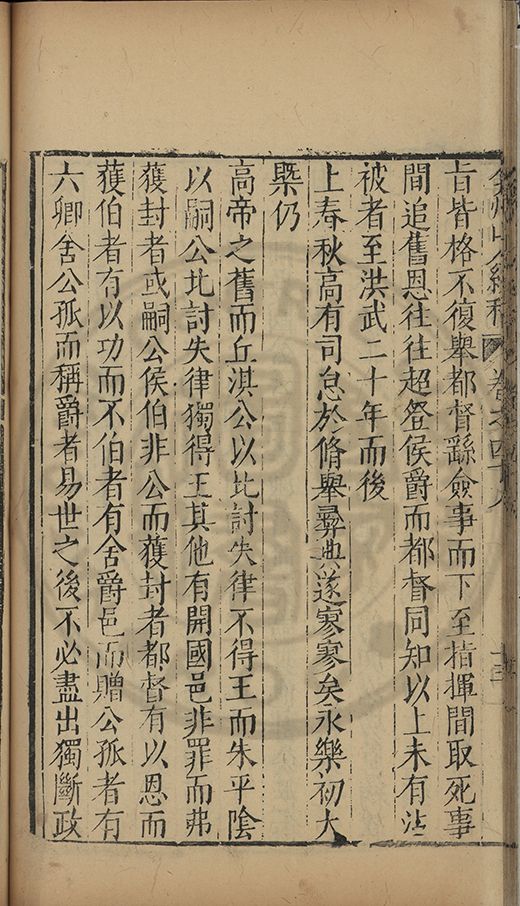 旨皆格不復舉都督繇僉事而下至指揮間取死事
間追舊恩往往超登侯爵而都督同知以上未有法
被者至洪武二十年而後
上春秋高有司怠於脩舉彞典遂寥寥矣永樂初大
槩仍
高帝之舊而丘淇公以北討失律不得王而朱平陰
以嗣公北討失律獨得王其他有開國邑非罪而弗
獲封者或嗣公侯伯非公而獲封者都督有以恩而
獲伯者有以功而不伯者有舍爵邑而贈公孤者有
六卿舍公孤而稱爵者易世之後不必盡出獨斷政